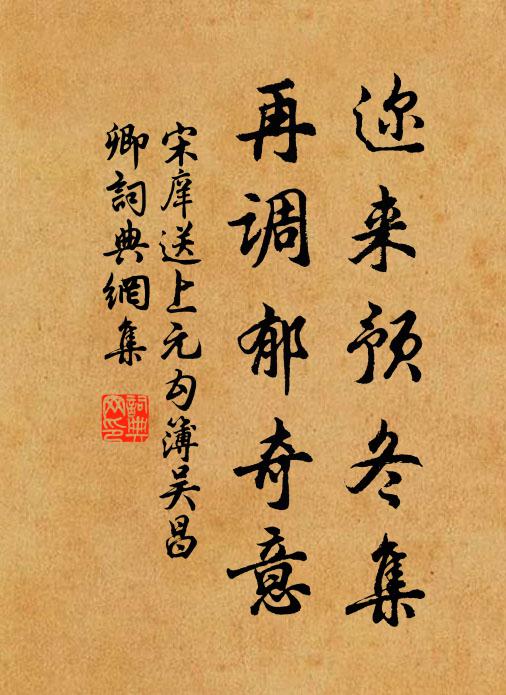 迩来预冬集
再调郁奇意
宋庠送上元勾簿吴昌
卿词典網集
詞典網印